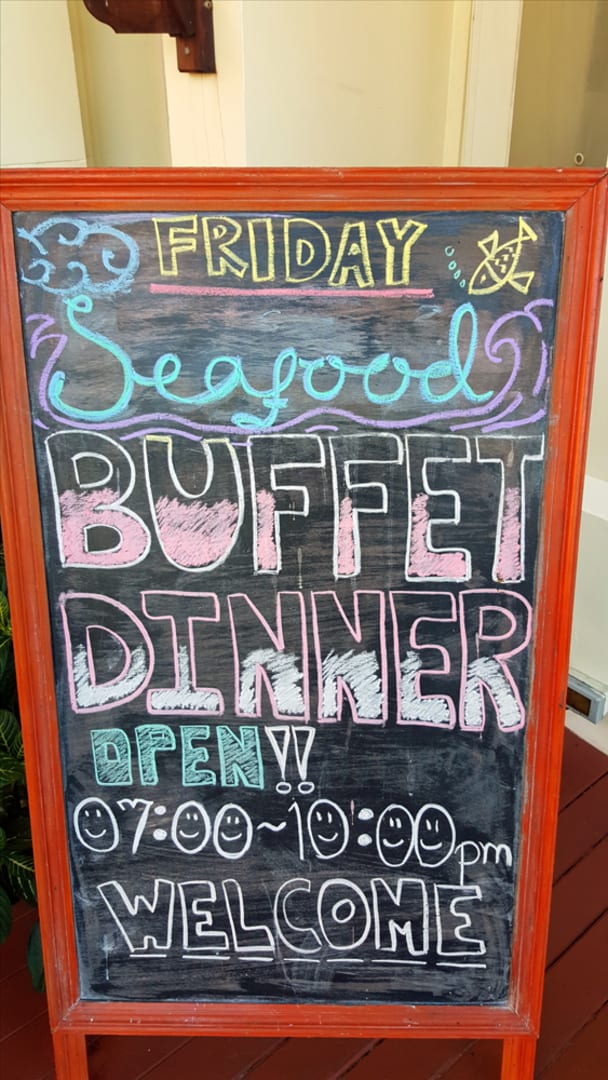 FRIDAY
Seafood
BUFFET
DINNER
OPEN!!
07:00~10:00pm
WELCOME